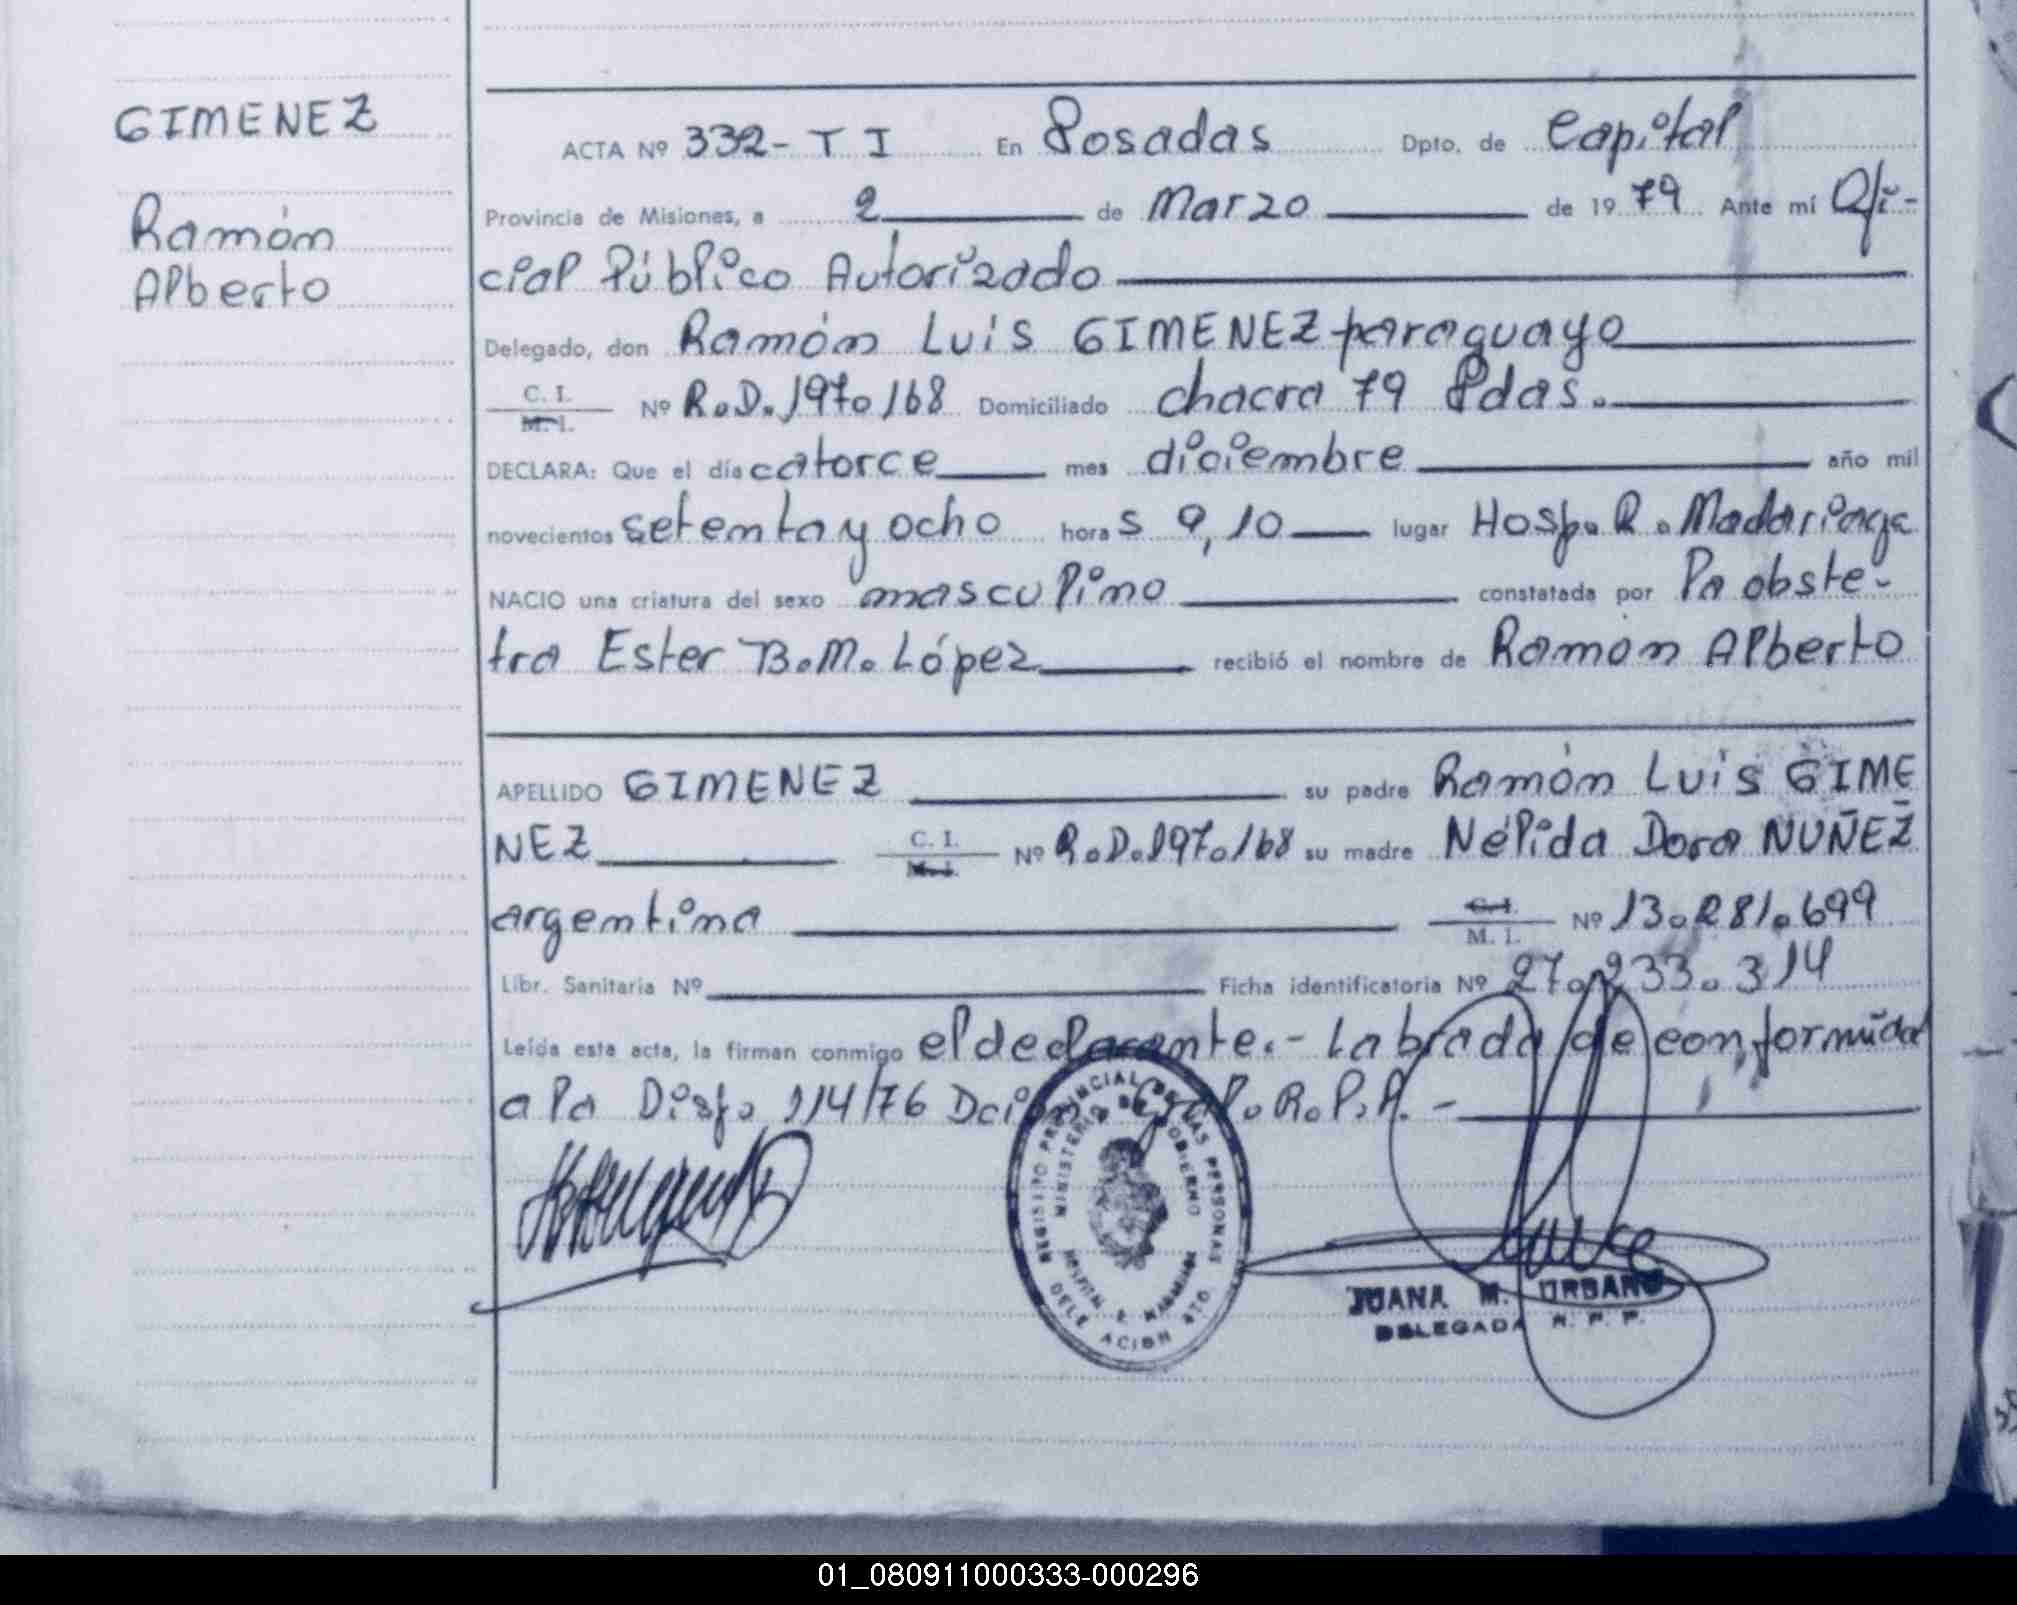 GIMENEZ
Ramón
Alberto
ACTA Nº 332- T I En Posadas Dpto. de Capital
Provincia de Misiones, a 2 de Marzo de 1979 Ante mí Ofi-
cial Público Autorizado
Delegado, don Ramón Luis GIMENEZ paraguayo
C. I. M. I. Nº R.D.197.168 Domiciliado chacra 79 Pdas.
DECLARA: Que el día catorce mes diciembre año mil
novecientos setenta y ocho hora s 9,10 lugar Hosp. R. Madariaga
NACIO una criatura del sexo masculino constatada por la obste-
tra Ester B.M. López recibió el nombre de Ramón Alberto
APELLIDO GIMENEZ su padre Ramón Luis GIME
NEZ C. I. M. I. Nº R.D.197.168 su madre Nélida Dora NUÑEZ
argentina C. I. M. I. Nº 13.281.699
Libr. Sanitaria Nº Ficha identificatoria Nº 27.233.314
Leída esta acta, la firman conmigo el declarante.- Labrada de conformidad
a la Disp. 114/76 Dción Gral. R.P.P. -
REGISTRO PROVINCIAL DE LAS PERSONAS
MINISTERIO DE GOBIERNO
HOSPITAL R. MADARIAGA
DELEGACION
JUANA M. URBANO
DELEGADA R. P. P.
01_080911000333-000296